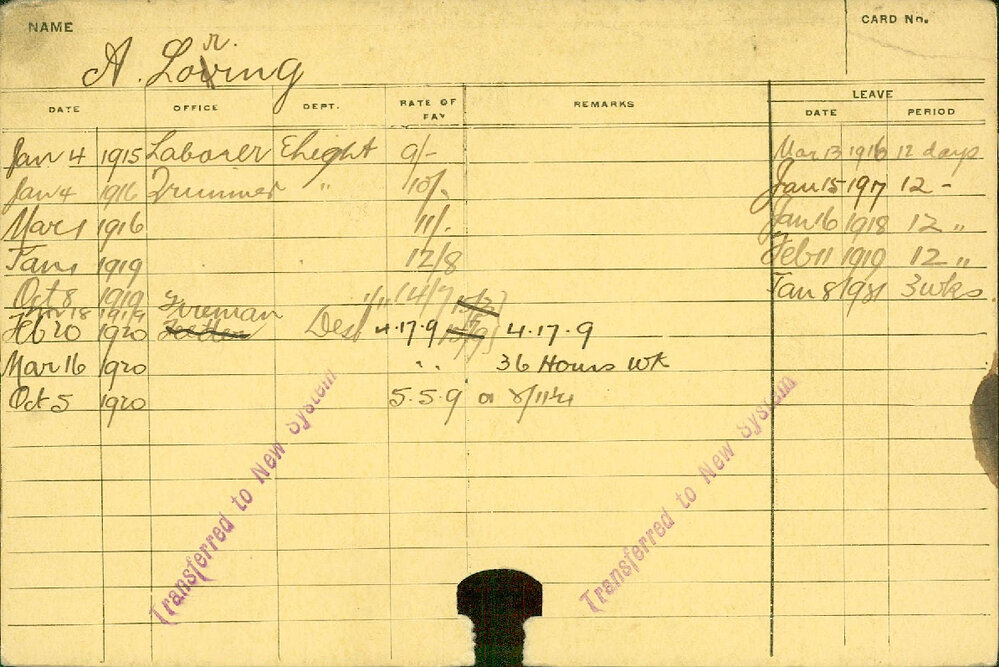 NAME
CARD No.
A. Loring
r.
DATE OFFICE DEPT. RATE OF PAY REMARKS LEAVE
DATE PERIOD
Jan 4 1915 Laborer Elight 9/- Mar 13 1916 12 days
Jan 4 1916 Trimmer " 10/- Jan 15 1917 12 -
Mar 1 1916 11/- Jan 16 1918 12 "
Jan 1 1919 12/8 Feb 11 1919 12 "
Oct 8 1919 14/7 Jan 8 1921 3 wks
Nov 18 1919 Fireman
Feb 20 1920 Dest 4.17.9 4.17.9
Mar 16 1920 " 36 Hours Wk
Oct 5 1920 5.5.9 or
Transferred to New System
Transferred to New System